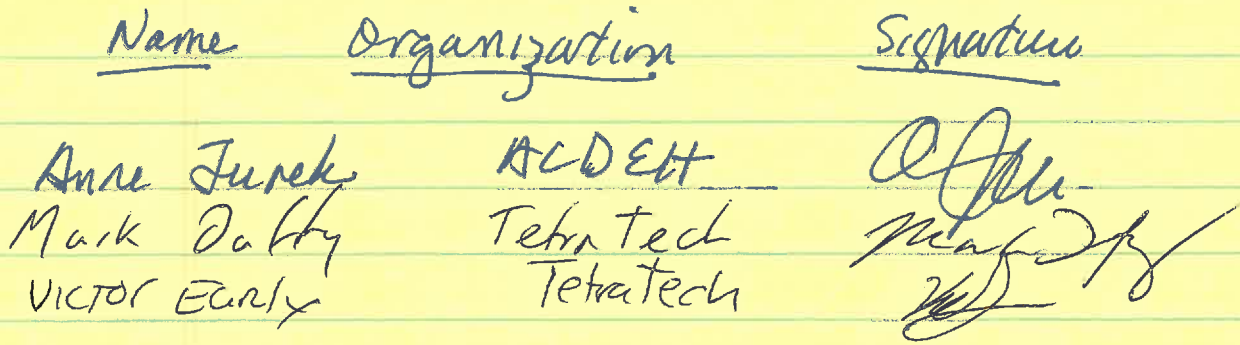 Name Organization Signature
Anne Jurek ACDEH
Mark Tetra Tech
VICTOR Early TetraTech